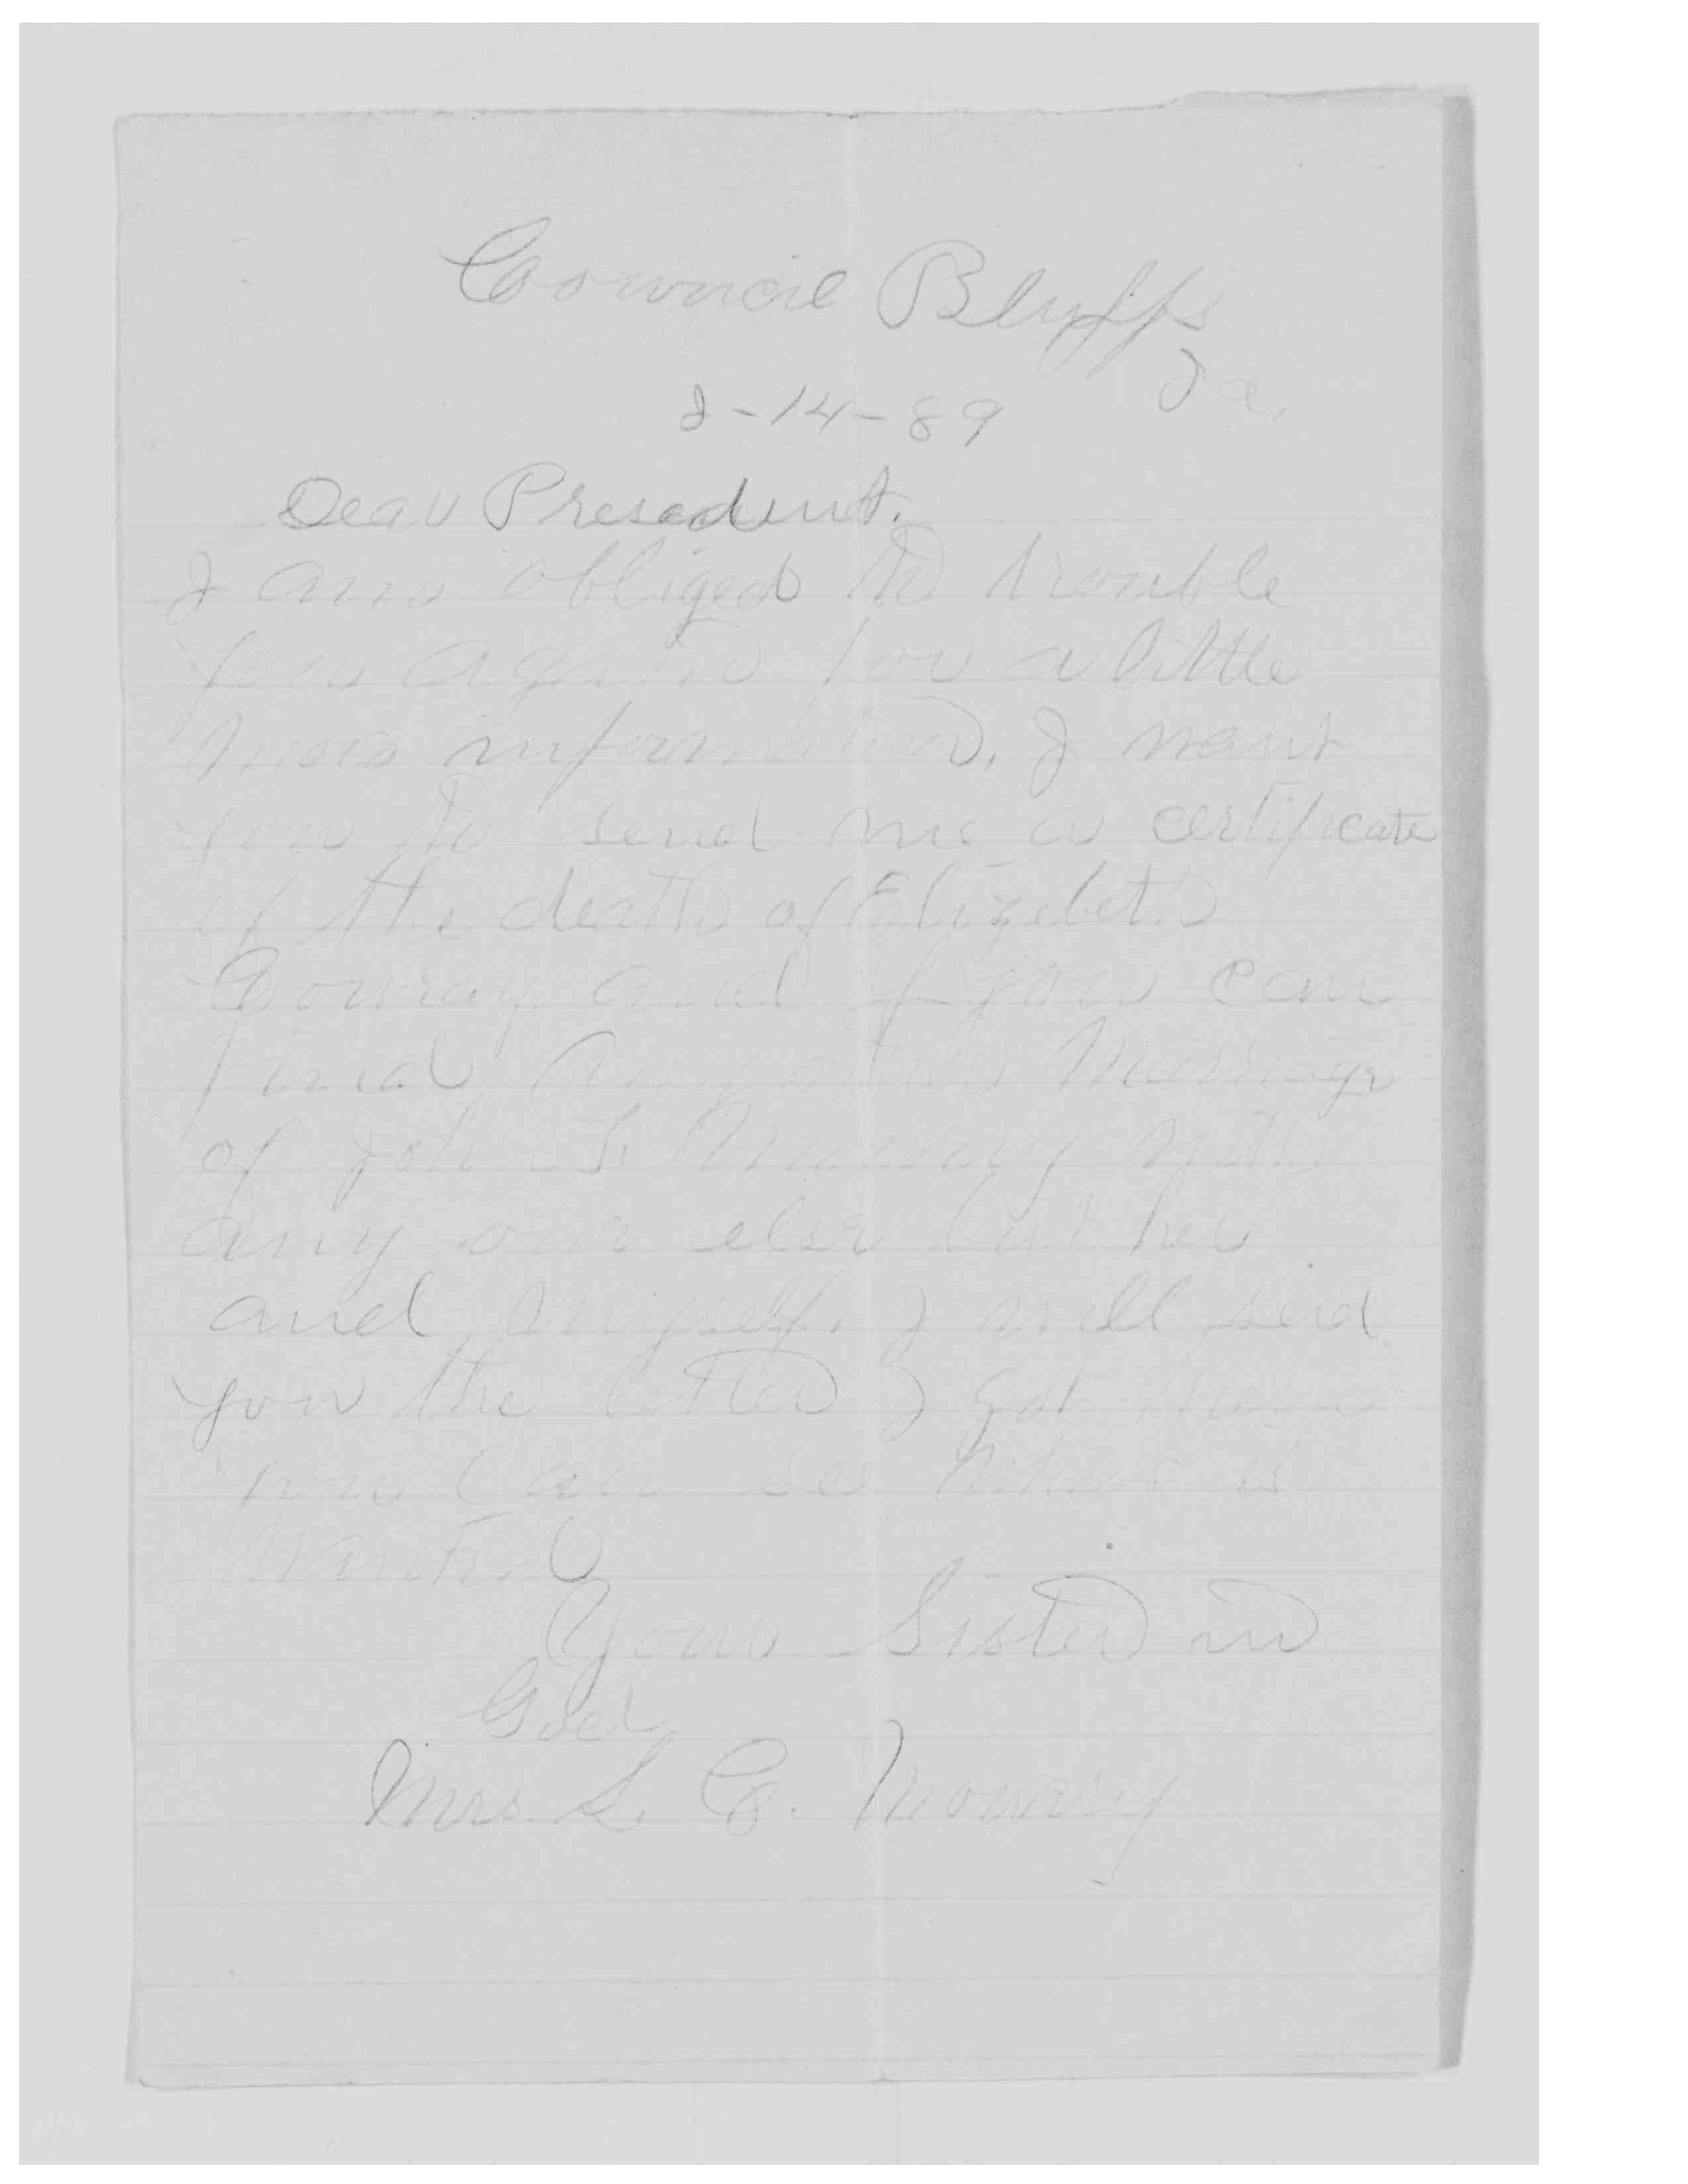 Council Bluffs
Ia.
2-14-89
Dear Presadent.
I am obliged to trouble
you again for a little
more information, I want
you to send me a certificate
of the death of Elizebeth
and if you can
find any other Marriage
of John S. Mowrey with
any one else but her
and myself. I will send
you the letter I got
you can se what is
wanted
Your Sister in
God
Mrs L. C. Mowrey